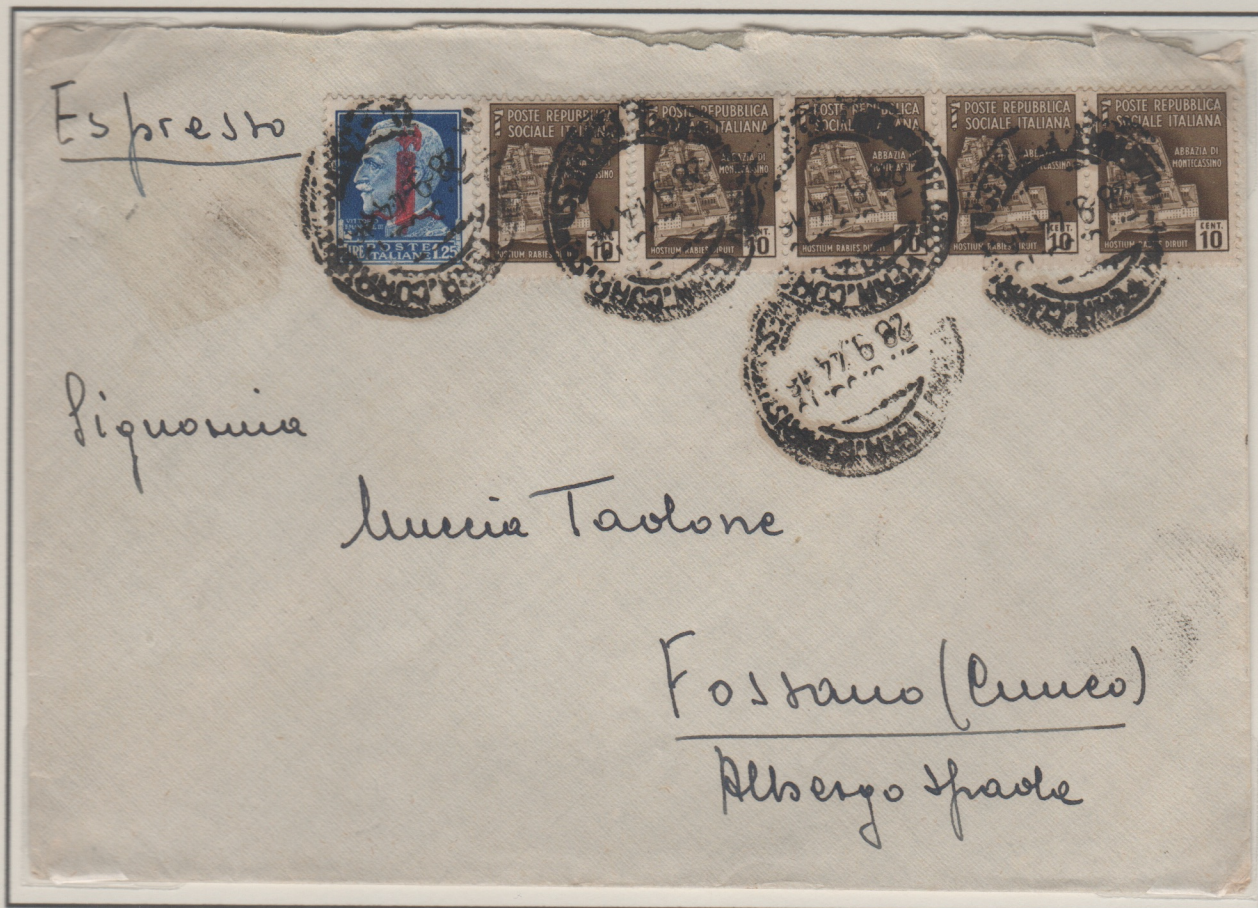 Espresso
POSTE
ITALIANE
LIRE 1.25
POSTE REPUBBLICA
SOCIALE ITALIANA
CENT.
10
HOSTIUM RABIES DIRUIT
POSTE REPUBBLICA
SOCIALE ITALIANA
ABBAZIA DI
MONTECASSINO
CENT.
10
HOSTIUM RABIES DIRUIT
POSTE REPUBBLICA
SOCIALE ITALIANA
ABBAZIA DI
MONTECASSINO
CENT.
10
HOSTIUM RABIES DIRUIT
POSTE REPUBBLICA
SOCIALE ITALIANA
CENT.
10
HOSTIUM RABIES DIRUIT
POSTE REPUBBLICA
SOCIALE ITALIANA
ABBAZIA DI
MONTECASSINO
CENT.
10
HOSTIUM RABIES DIRUIT
28.9.44
Signorina
Muccia Taolone
Fossano (Cuneo)
Albergo Spada